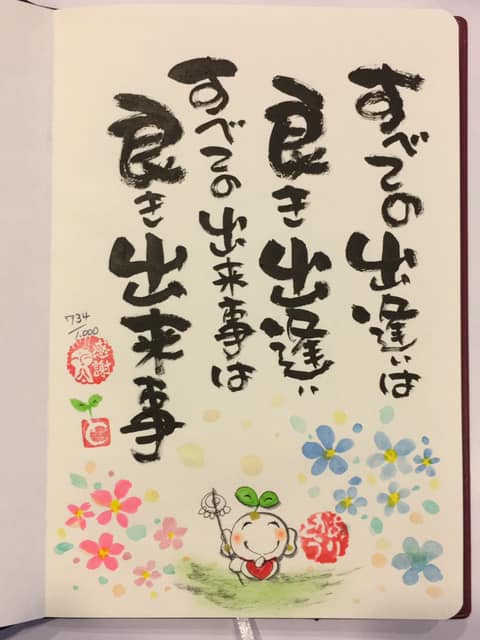 すべての出逢いは
良き出逢い
すべての出来事は
良き出来事
734/1.000
感謝